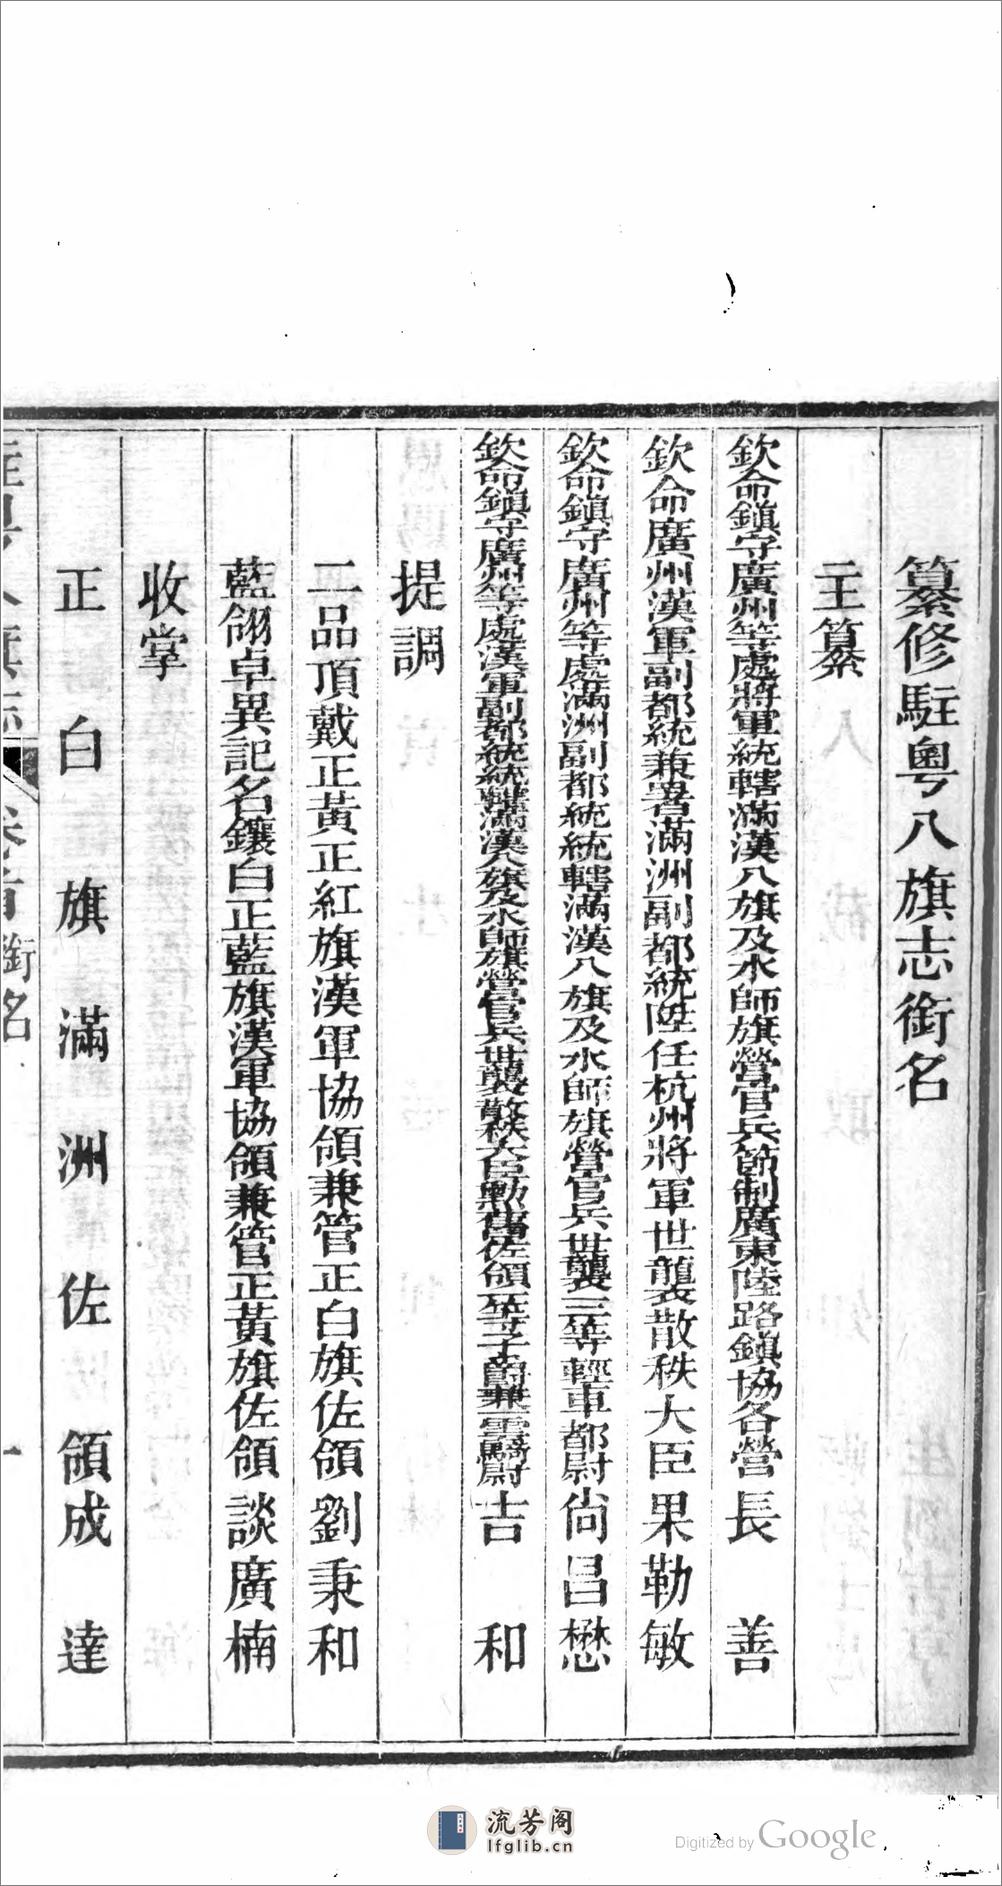 纂修駐粵八旗志銜名
主纂
欽命鎮守廣州等處將軍統轄滿漢八旗及水師旗營官兵節制廣東陸路鎮協各營長 善
欽命廣州漢軍副都統兼署滿洲副都統陞任杭州將軍世襲散秩大臣果勒敏
欽命鎮守廣州等處滿洲副都統統轄滿漢八旗及水師旗營官兵世襲三等輕車都尉尚昌懋
欽命鎮守廣州等處漢軍副都統統轄滿漢八旗及水師旗營官兵世襲散秩大臣勳舊佐領一等子爵兼一雲騎尉吉 和
提調
二品頂戴正黃正紅旗漢軍協領兼管正白旗佐領劉秉和
藍翎卓異記名鑲白正藍旗漢軍協領兼管正黃旗佐領談廣楠
收掌
正白旗滿洲佐領成 達
卷首 銜名
一
流芳阁
lfglib.cn
Digitized by Google